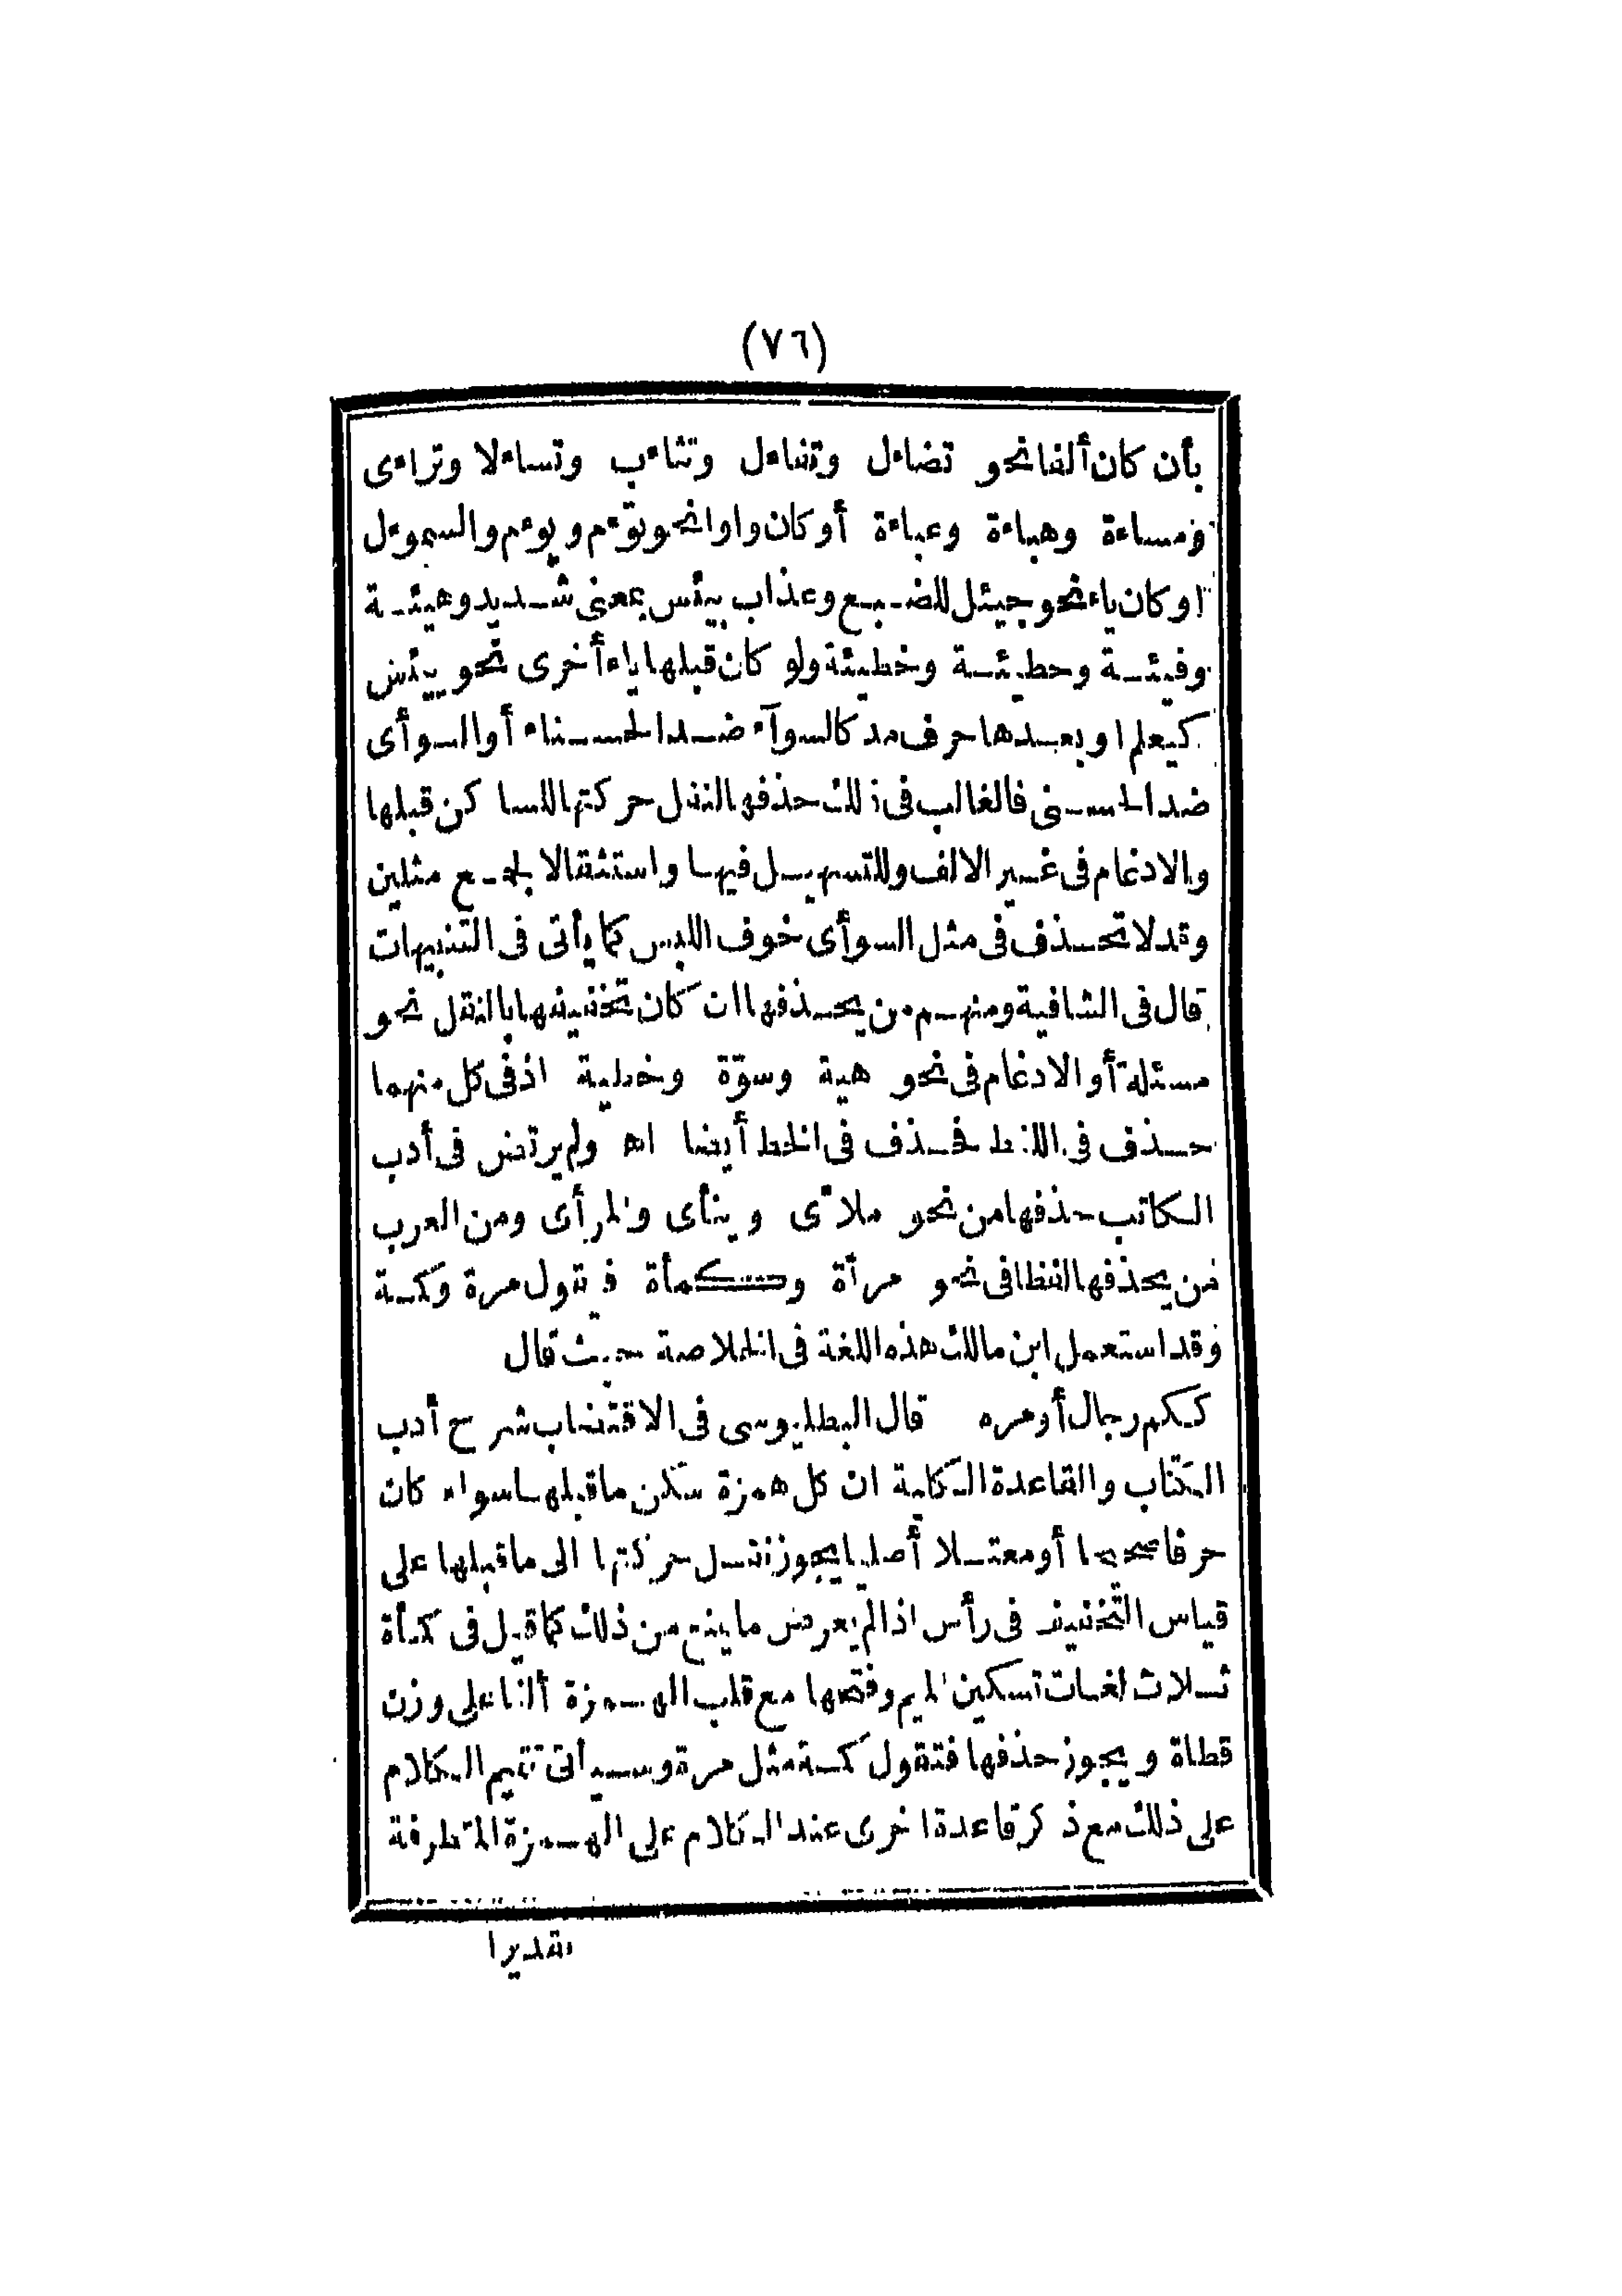 (٧٦)
بأن كان ألفا نحو تضاءل وتفاءل وتثاءب وتساءلا وتراءى
ومساءة وهباءة وعباءة أو كان واوا نحو توءم ويوءم والسموءل
او كان ياء نحو جيئل للضبع وعذاب بيئس بمعنى شديد وهيئة
وفيئة وحطيئة وخطيئة ولو كان قبلها ياء أخرى نحو ييئس
كيعلم او بعدها حرف مد كالسوآء ضد الحسناء أو السوأى
ضد الحسنى فالغالب فى ذلك حذفها لنقل حركتها للساكن قبلها
والادغام فى غير الالف وللتسهيل فيها واستثقالا لجمع مثلين
وقد لا تحذف فى مثل السوأى خوف اللبس كما يأتى فى التنبيهات
قال فى الشافية ومنهم من يحذفها ان كان تخفيفها بالنقل نحو
مسئلة أو الادغام فى نحو هية وسوّة وخطية اذ فى كل منهما
حذف فى اللفظ فحذف فى الخط أيضا اه ولم يرتض فى أدب
الكاتب حذفها من نحو ملآى وينأى والمرأى ومن العرب
من يحذفها لفظا فى نحو مرأة وكمأة فيقول مرة وكمة
وقد استعمل ابن مالك هذه اللغة فى الخلاصة حيث قال
ككم رجال أو مره قال البطليوسى فى الاقتضاب شرح أدب
الكتاب والقاعدة الكلية ان كل همزة سكن ما قبلها سواء كان
حرفا صحيحا أو معتلا أصليا يجوز نقل حركتها الى ما قبلها على
قياس التخفيف فى رأس اذا لم يعرض ما يمنع من ذلك كما قيل فى كمأة
ثلاث لغات تسكين الميم وفتحها مع قلب الهمزة ألفا على وزن
قطاة ويجوز حذفها فتقول كمة مثل مرة وسيأتى تتميم الكلام
على ذلك مع ذكر قاعدة اخرى عند الكلام على الهمزة المتطرفة
تقديرا